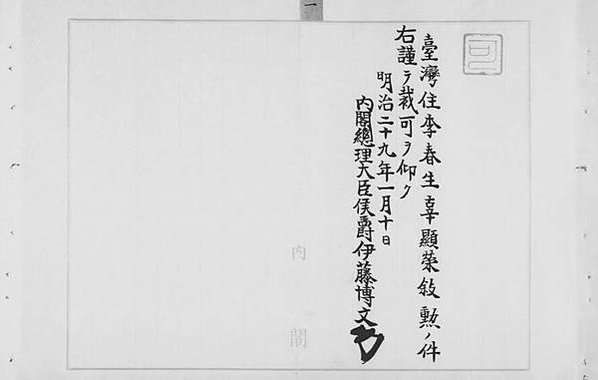 可
臺灣住李春生辜顯榮敍勲ノ件
右謹テ裁可ヲ仰ク
明治二十九年一月十日
内閣總理大臣侯爵伊藤博文
内閣
一